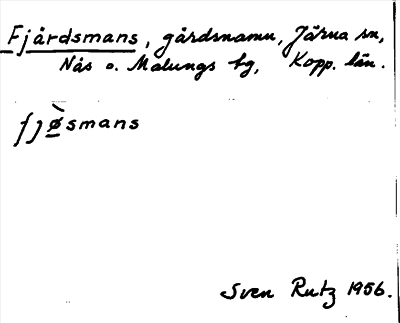 Fjärdsmans, gårdsnamn, Järna sn,
Nås o. Malungs bg, Kopp. län.
fjø̀smans
Sven Rutz 1956.